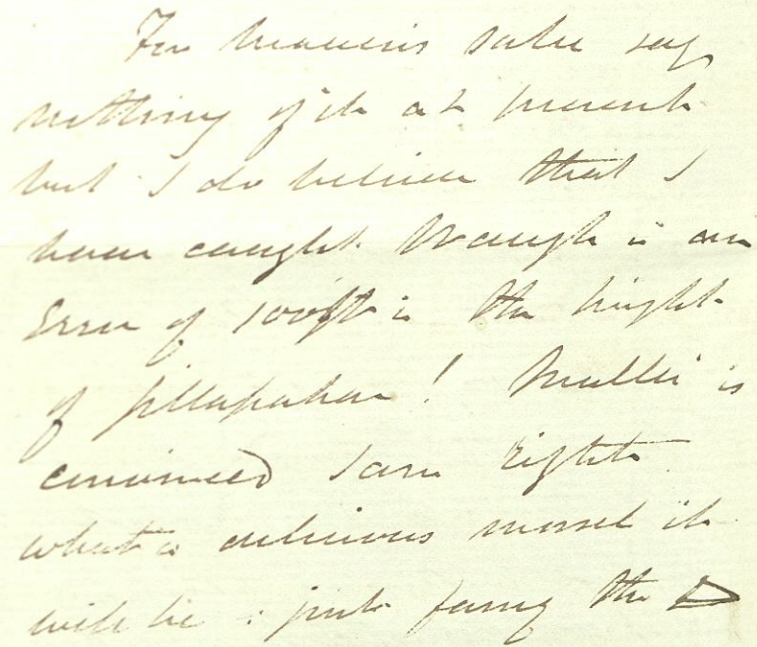 For heavens sake say
nothing of it at present
but I do believe that I
have caught Waugh in an
Error of 100ft in the height
of Jillapahar! Muller is
convinced I am right
what a delicious morsel it
will be : just fancy the